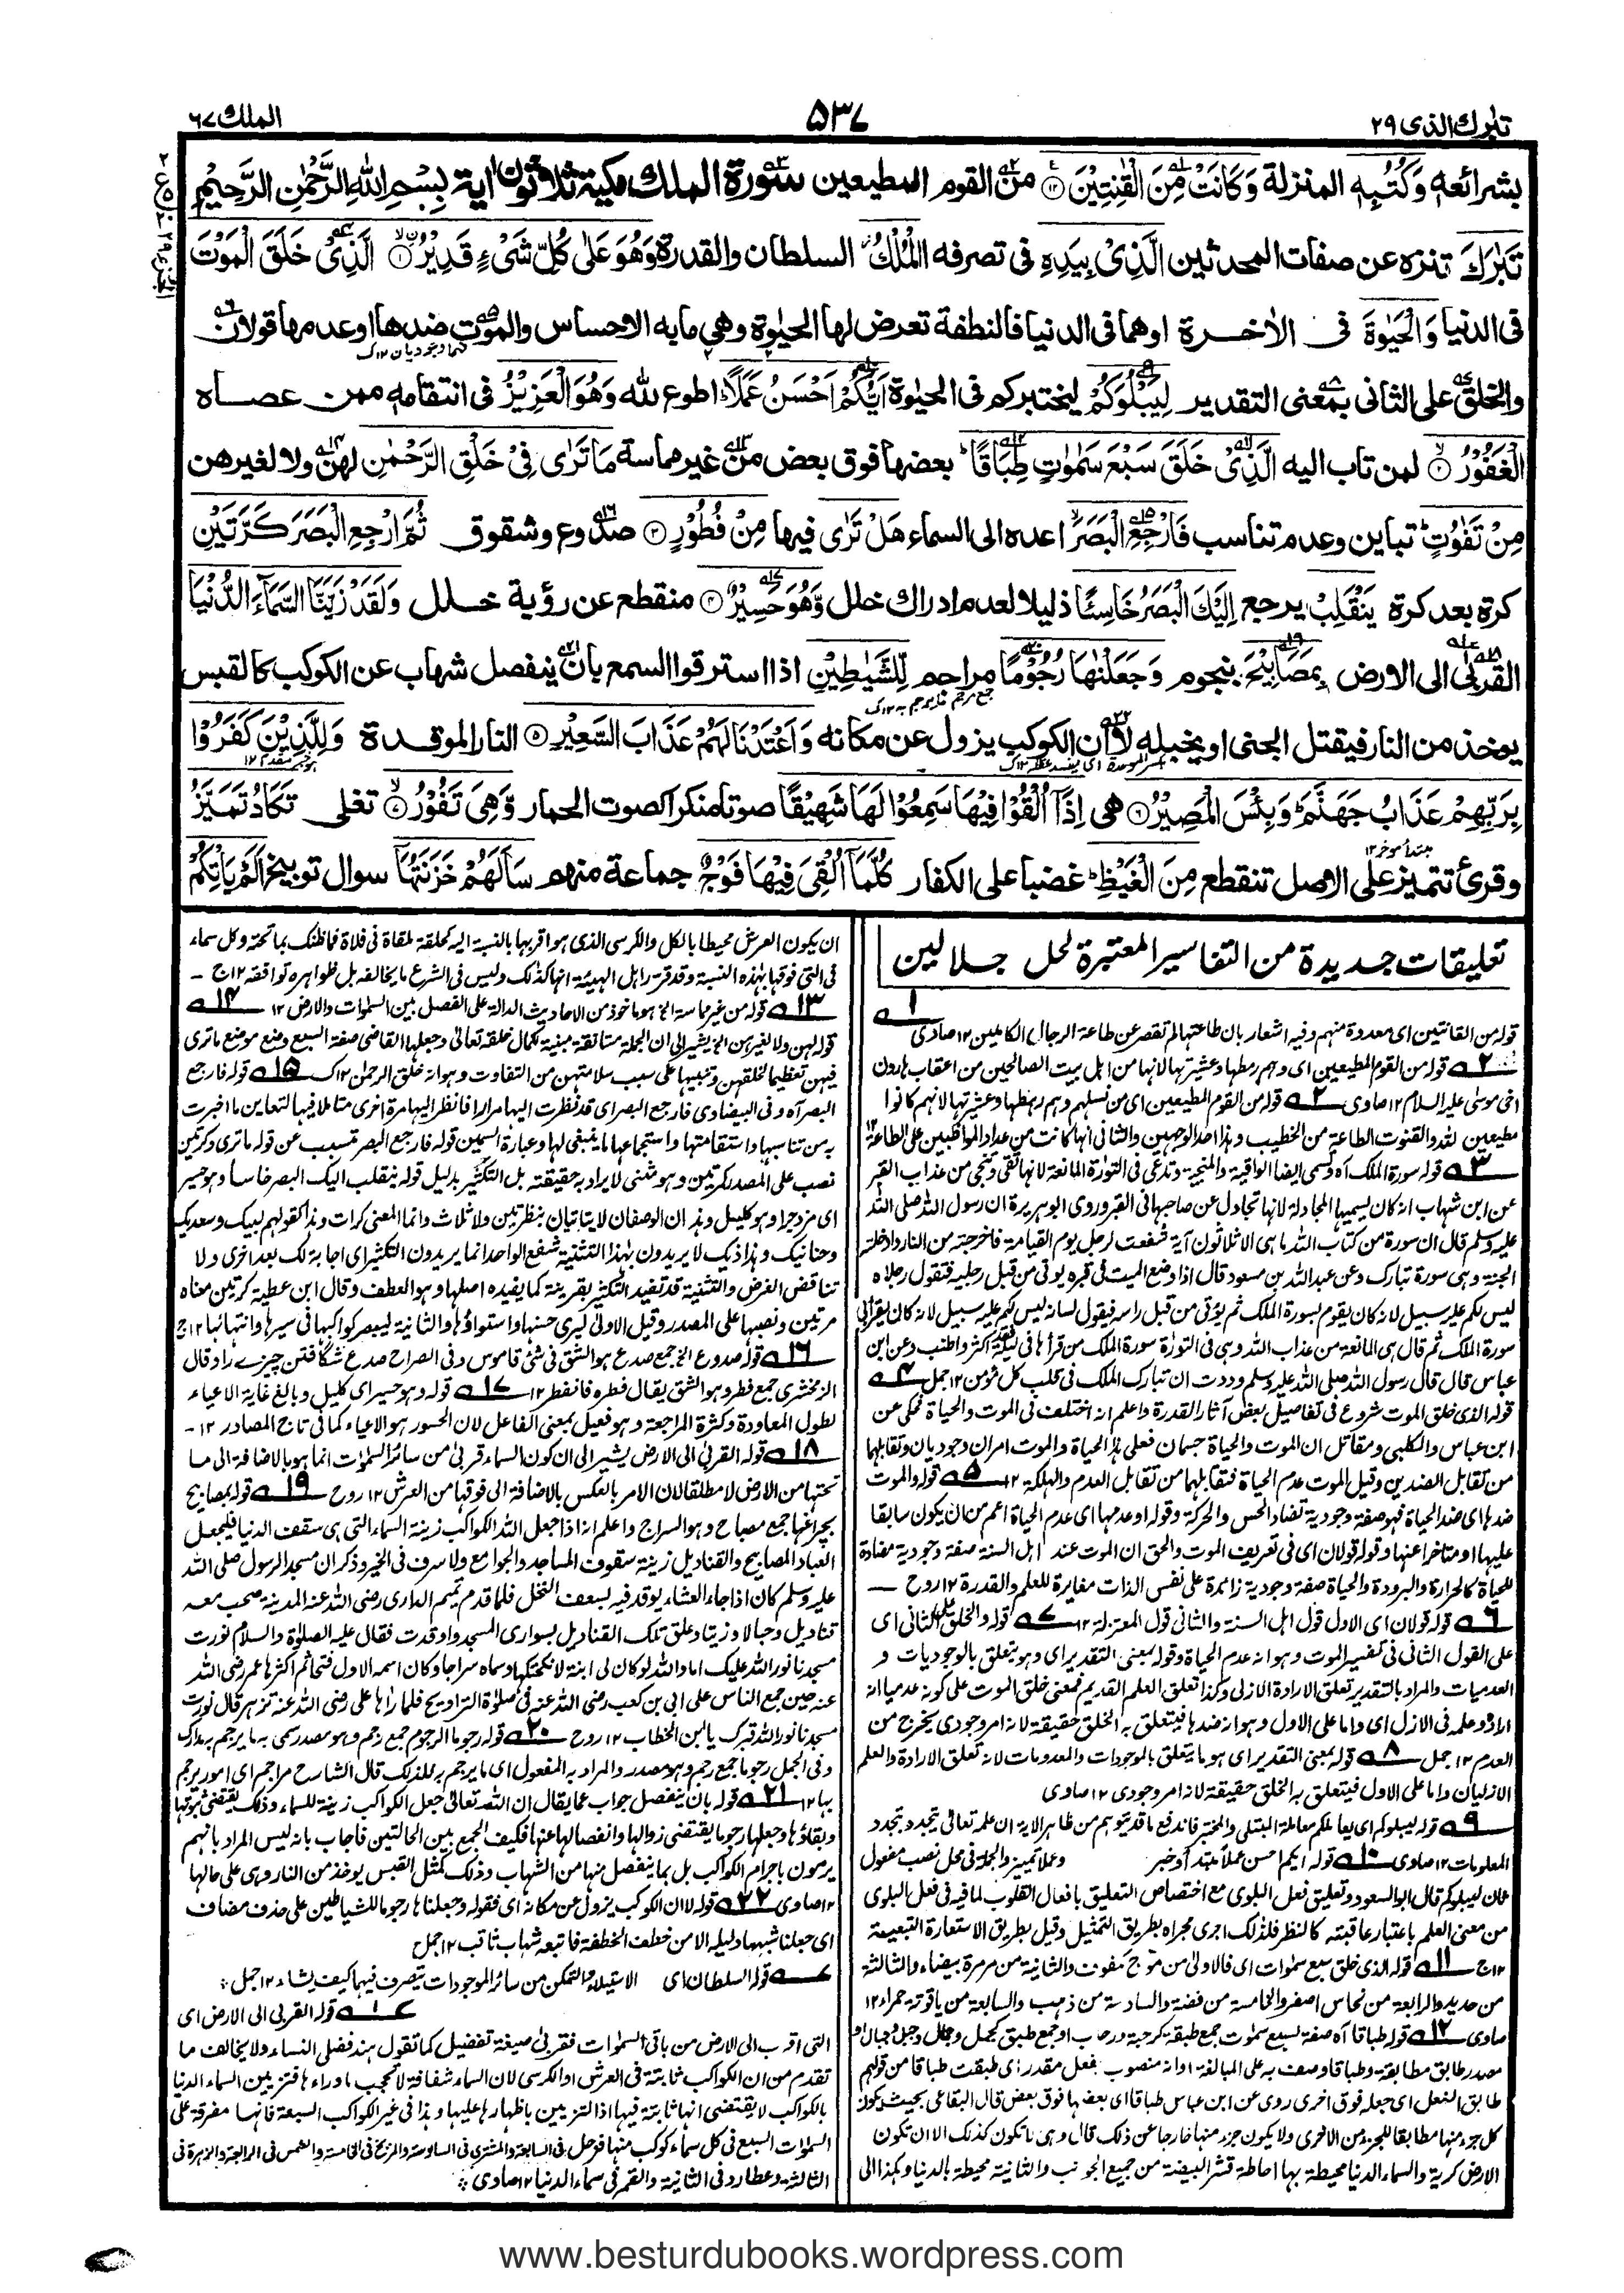 تبٰرك الذی ٢٩
٥٣٧
الملك ٦٧
بشرائعه وَكُتُبِهٖ المنزلة وَكَانَتْ مِنَ الْقٰنِتِيْنَ ۝١٢ من القوم المطيعين سورة الملك مكية ثلاثون اٰية بِسْمِ اللهِ الرَّحْمٰنِ الرَّحِيْمِ
تَبٰرَكَ تنزه عن صفات المحدثين الَّذِىْ بِيَدِهِ فى تصرفه الْمُلْكُ السلطان والقدرة وَهُوَ عَلٰى كُلِّ شَىْءٍ قَدِيْرٌ ۝١ الَّذِىْ خَلَقَ الْمَوْتَ
فى الدنيا وَالْحَيٰوةَ فى الاٰخرة او هما فى الدنيا فالنطفة تعرض لها الحيٰوة وهى ما به الاحساس والموت ضدها او عدمها قولان
والخلق على الثانى بمعنى التقدير لِيَبْلُوَكُمْ ليختبركم فى الحيٰوة اَيُّكُمْ اَحْسَنُ عَمَلًا اطوع لله وَهُوَ الْعَزِيْزُ فى انتقامه ممن عصاه
الْغَفُوْرُ ۝٢ لمن تاب اليه الَّذِىْ خَلَقَ سَبْعَ سَمٰوٰتٍ طِبَاقًا بعضها فوق بعض من غير مماسة مَا تَرٰى فِىْ خَلْقِ الرَّحْمٰنِ لهن ولا لغيرهن
مِنْ تَفٰوُتٍ تباين وعدم تناسب فَارْجِعِ الْبَصَرَ اعده الى السماء هَلْ تَرٰى فيها مِنْ فُطُوْرٍ ۝٣ صدوع وشقوق ثُمَّ ارْجِعِ الْبَصَرَ كَرَّتَيْنِ
كرة بعد كرة يَنْقَلِبْ يرجع اِلَيْكَ الْبَصَرُ خَاسِئًا ذليلا لعدم ادراك خلل وَّهُوَ حَسِيْرٌ ۝٤ منقطع عن رؤية خلل وَلَقَدْ زَيَّنَّا السَّمَآءَ الدُّنْيَا
القربى الى الارض بِمَصَابِيْحَ بنجوم وَجَعَلْنٰهَا رُجُوْمًا مراجم لِّلشَّيٰطِيْنِ اذا استرقوا السمع بان ينفصل شهاب عن الكوكب كالقبس
يوخذ من النار فيقتل الجنى او يخبله لا ان الكوكب يزول عن مكانه وَاَعْتَدْنَا لَهُمْ عَذَابَ السَّعِيْرِ ۝٥ النار الموقدة وَلِلَّذِيْنَ كَفَرُوْا
بِرَبِّهِمْ عَذَابُ جَهَنَّمَ وَبِئْسَ الْمَصِيْرُ ۝٦ هى اِذَآ اُلْقُوْا فِيْهَا سَمِعُوْا لَهَا شَهِيْقًا صوتا منكرا كصوت الحمار وَّهِىَ تَفُوْرُ ۝٧ تغلى تَكَادُ تَمَيَّزُ
وقرئ تتميز على الاصل تنقطع مِنَ الْغَيْظِ غضبا على الكفار كُلَّمَآ اُلْقِىَ فِيْهَا فَوْجٌ جماعة منهم سَاَلَهُمْ خَزَنَتُهَا سوال توبيخ اَلَمْ يَاْتِكُمْ
تعليقات جديدة من التفاسير المعتبرة لحل جلالين
١ قوله من القانتين اى معدودة منهم وفيه اشعار بان طاعتها لم تقصر عن طاعة الرجال الكاملين ١٢ صاوى
٢ قوله من القوم المطيعين اى وهم رهطها وعشيرتها لانها من اهل بيت الصالحين من اعقاب هارون
اخى موسٰى عليه السلام ١٢ صاوى ٢ قوله من القوم المطيعين اى من نسلهم وهم رهطها وعشيرتها لانهم كانوا
مطيعين لله والقنوت الطاعة من الخطيب وهذا احد الوجهين والثانى انها كانت من عداد المواظبين على الطاعة ١٢
٣ قوله سورة الملك اه وتسمى ايضا الواقية والمنجية وتدعى فى التوراة المانعة لانها تقى وتنجى من عذاب القبر
عن ابن شهاب انه كان يسميها المجادلة لانها تجادل عن صاحبها فى القبر وروى ابو هريرة ان رسول الله صلى الله
عليه وسلم قال ان سورة من كتاب الله ما هى الا ثلاثون آية شفعت لرجل يوم القيامة فاخرجته من النار وادخلته
الجنة وهى سورة تبارك وعن عبد الله بن مسعود قال اذا وضع الميت فى قبره يوتى من قبل رجليه فتقول رجلاه
ليس لكم عليه سبيل لانه كان يقوم بسورة الملك ثم يؤتى من قبل راسه فيقول لسانه ليس لكم عليه سبيل لانه كان يقرأ بى
سورة الملك ثم قال هى المانعة من عذاب الله وهى فى التوراة سورة الملك من قرأها فى ليلة فقد اكثر واطنب وعن ابن
عباس قال قال رسول الله صلى الله عليه وسلم وددت ان تبارك الملك فى قلب كل مؤمن ١٢ جمل ٤
قوله الذى خلق الموت شروع فى تفاصيل بعض آثار القدرة واعلم انه اختلف فى الموت والحياة فحكى عن
ابن عباس والكلبى ومقاتل ان الموت والحياة جسمان فعلى هذا الحياة والموت امران وجوديان وتقابلهما
من تقابل الضدين وقيل الموت عدم الحياة فتقابلهما من تقابل العدم والملكة ١٢ ٥ قوله والموت
ضدها اى ضد الحياة فهو صفة وجودية تضاد الحس والحركة وقوله او عدمها اى عدم الحياة اعم من ان يكون سابقا
عليها او متاخرا عنها وقوله قولان اى فى تعريف الموت والحق ان الموت عند اهل السنة صفة وجودية مضادة
للحياة كالحرارة والبرودة والحياة صفة وجودية زائدة على نفس الذات مغايرة للعلم والقدرة ١٢ روح
٦ قوله قولان اى الاول قول اهل السنة والثانى قول المعتزلة ١٢ ٧ قوله والخلق على الثانى اى
على القول الثانى فى تفسير الموت وهو انه عدم الحياة وقوله بمعنى التقدير اى وهو يتعلق بالوجوديات و
العدميات والمراد بالتقدير تعلق الارادة الازلى وكذا تعلق العلم القديم فمعنى خلق الموت على كونه عدميا انه
اراده وعلمه فى الازل اى واما على الاول وهو انه ضدها فيتعلق به الخلق حقيقة لانه امر وجودى يخرج من
العدم ١٢ جمل ٨ قوله بمعنى التقدير اى هو ما يتعلق بالموجودات والمعدومات لانه تعلق الارادة والعلم
الازليان واما على الاول فيتعلق به الخلق حقيقة لانه امر وجودى ١٢ صاوى
٩ قوله ليبلوكم اى يعاملكم معاملة المبتلى والمختبر فاندفع ما قد يتوهم من ظاهر الاية ان علمه تعالى يتجدد بتجدد
المعلومات ١٢ صاوى ١٠ قوله ايكم احسن عملا مبتدأ وخبر وعملا تمييز والجملة فى محل نصب مفعول
ثان ليبلوكم قال ابو السعود وتعليق فعل البلوى مع اختصاص التعليق بافعال القلوب لما فيه فى فعل البلوى
من معنى العلم باعتبار عاقبته كالنظر فلذلك اجرى مجراه بطريق التمثيل وقيل بطريق الاستعارة التبعية
١٢ ج ١١ قوله الذى خلق سبع سموات اى فالاولى من موج مكفوف والثانية من مرمرة بيضاء والثالثة
من حديد والرابعة من نحاس اصفر والخامسة من فضة والسادسة من ذهب والسابعة من ياقوتة حمراء ١٢
صاوى ١٢ قوله طباقا اه صفة لسبع سموت جمع طبقة كرحبة ورحاب او جمع طبق كجمل وجمال وجبل وجبال او
مصدر طابق مطابقة وطباقا وصف به على المبالغة او انه منصوب بفعل مقدر اى طبقت طباقا من قولهم
طابق النعل اى جعله فوق اخرى روى عن ابن عباس طباقا اى بعضها فوق بعض قال البقاعى بحيث يكون
كل جزء منها مطابقا للجزء من الاخرى ولا يكون جزء منها خارجا عن ذلك قال وهى لا تكون كذلك الا ان تكون
الارض كرية والسماء الدنيا محيطة بها احاطة قشر البيضة من جميع الجوانب والثانية محيطة بالدنيا وهكذا الى
ان يكون العرش محيطا بالكل والكرسى الذى هو اقربها بالنسبة اليه كحلقة ملقاة فى فلاة فما ظنك بما تحته وكل سماء
فى التى فوقها بهذه النسبة وقد قرر اهل الهيئة انها كذلك وليس فى الشرع ما يخالفه بل ظواهره توافقه ١٢ ج
١٣ قوله من غير مماسة الخ هو ماخوذ من الاحاديث الدالة على الفصل بين السموات والارض ١٢ ١٤
قوله لهن ولا لغيرهن الخ يشير الى ان الجملة مستانفة مبينة لكمال خلقه تعالى وجعلها القاضى صفة السبع وضع موضع ما ترى
فيهن تعظيما لخلقهن وتنبيها على سبب سلامتهن من التفاوت وهو انه خلق الرحمٰن ١٢ ك ١٥ قوله فارجع
البصر اه وفى البيضاوى فارجع البصر اى قد نظرت اليها مرارا فانظر اليها مرة اخرى متاملا فيها لتعاين ما اخبرت
به من تناسبها واستقامتها واستجماعها ما ينبغى لها وعبارة السمين قوله فارجع البصر متسبب عن قوله ما ترى وكرتين
نصب على المصدر كمرتين وهو مثنى لا يراد به حقيقته بل التكثير بدليل قوله ينقلب اليك البصر خاسأ وهو حسير
اى مزدجرا وهو كليل وهذان الوصفان لا ياتيان بنظرتين ولا ثلاث وانما المعنى كرات وهذا كقولهم لبيك وسعديك
وحنانيك وهذاذيك لا يريدون بهذا التثنية شفع الواحد انما يريدون التكثير اى اجابة لك بعد اخرى ولا
تناقض الغرض والتثنية قد تفيد التكثير بقرينة كما يفيده اصلها وهو العطف وقال ابن عطية كرتين معناه
مرتين ونصبها على المصدر وقيل الاولى ليرى حسنها واستواؤها والثانية ليبصر كواكبها فى سيرها وانتهائها ١٢ ج
١٦ قوله صدوع الخ جمع صدع هو الشق فى شئ قاموس وفى الصراح صدع شگافتن چيزے را وقال
الزمخشرى جمع فطر وهو الشق يقال فطره فانفطر ١٢ ١٧ قوله وهو حسير اى كليل وبالغ غاية الاعياء
لطول المعاودة وكثرة المراجعة وهو فعيل بمعنى الفاعل لان الحسور هو الاعياء كما فى تاج المصادر ١٢
١٨ قوله القربى الى الارض يشير الى ان كون السماء قربى من سائر السموات انما هو بالاضافة الى ما
تحتها من الارض لا مطلقا لان الامر بالعكس بالاضافة الى فوقها من العرش ١٢ روح ١٩ قوله بمصابيح
بچراغها جمع مصباح وهو السراج واعلم انه اذا جعل الله الكواكب زينة السماء التى هى سقف الدنيا فليجعل
العباد المصابيح والقناديل زينة سقوف المساجد والجوامع ولا سرف فى الخير وذكر ان مسجد الرسول صلى الله
عليه وسلم كان اذا جاء العشاء يوقد فيه بسعف النخل فلما قدم تميم الدارى رضى الله عنه المدينة صحب معه
قناديل وحبالا وزيتا وعلق تلك القناديل بسوارى المسجد واوقدت فقال عليه الصلوة والسلام نورت
مسجدنا نور الله عليك اما والله لو كان لى ابنة لانكحتكها وسماه سراجا وكان اسمه الاول فتحا ثم اكثرها عمر رضى الله
عنه حين جمع الناس على ابى بن كعب رضى الله عنه فى صلوة التراويح فلما راها على رضى الله عنه تزهر قال نورت
مسجدنا نور الله قبرك يا ابن الخطاب ١٢ روح ٢٠ قوله رجوما الرجوم جمع رجم وهو مصدر سمى به ما يرجم به مدارك
وفى الجمل رجوما جمع رجم وهو مصدر والمراد به المفعول اى ما يرجم به فلذلك قال الشارح مراجم اى امور يرجم
بها ١٢ ٢١ قوله بان ينفصل جواب عما يقال ان الله تعالى جعل الكواكب زينة للسماء وذلك يقتضى ثبوتها
وبقاؤها وجعلها رجوما يقتضى زوالها وانفصالها عنها فكيف الجمع بين الحالتين فاجاب بانه ليس المراد بانهم
يرمون باجرام الكواكب بل بما ينفصل منها من الشهاب وذلك كمثل القبس يوخذ من النار وهى على حالها
١٢ صاوى ٢٢ قوله لا ان الكوكب يزول عن مكانه اى فقوله وجعلناها رجوما للشياطين على حذف مضاف
اى جعلنا شهبها دليله الا من خطف الخطفة فاتبعه شهاب ثاقب ١٢ جمل
قوله السلطان اى الاستيلاء والتمكن من سائر الموجودات يتصرف فيها كيف يشاء ١٢ جمل
قوله القربى الى الارض اى
التى اقرب الى الارض من باقى السموات فقربى صيغة تفضيل كما تقول هند فضلى النساء ولا يخالف ما
تقدم من ان الكواكب ثابتة فى العرش او الكرسى لان السماء شفافة لا تحجب ما وراءها فتزيين السماء الدنيا
بالكواكب لا يقتضى انها ثابتة فيها اذ التزيين باظهارها عليها وهذا فى غير الكواكب السبعة فانها مفرقة على
السموات السبع فى كل سماء كوكب منها فزحل فى السابعة والمشترى فى السادسة والمريخ فى الخامسة والشمس فى الرابعة والزهرة فى
الثالثة وعطارد فى الثانية والقمر فى سماء الدنيا ١٢ صاوى
www.besturdubooks.wordpress.com